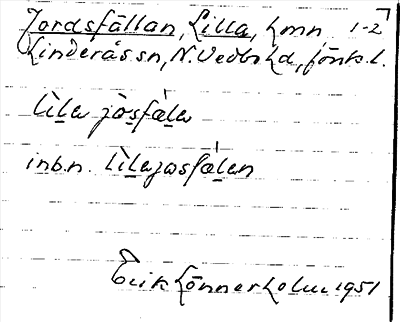 Jordsfällan, Lilla, hmn 1-2
Linderås sn, N. Vedbo hd, Jönk. l.
lìla jòsfäla
inb.n. lìlajosfälen
Erik Lönnerholm 1951